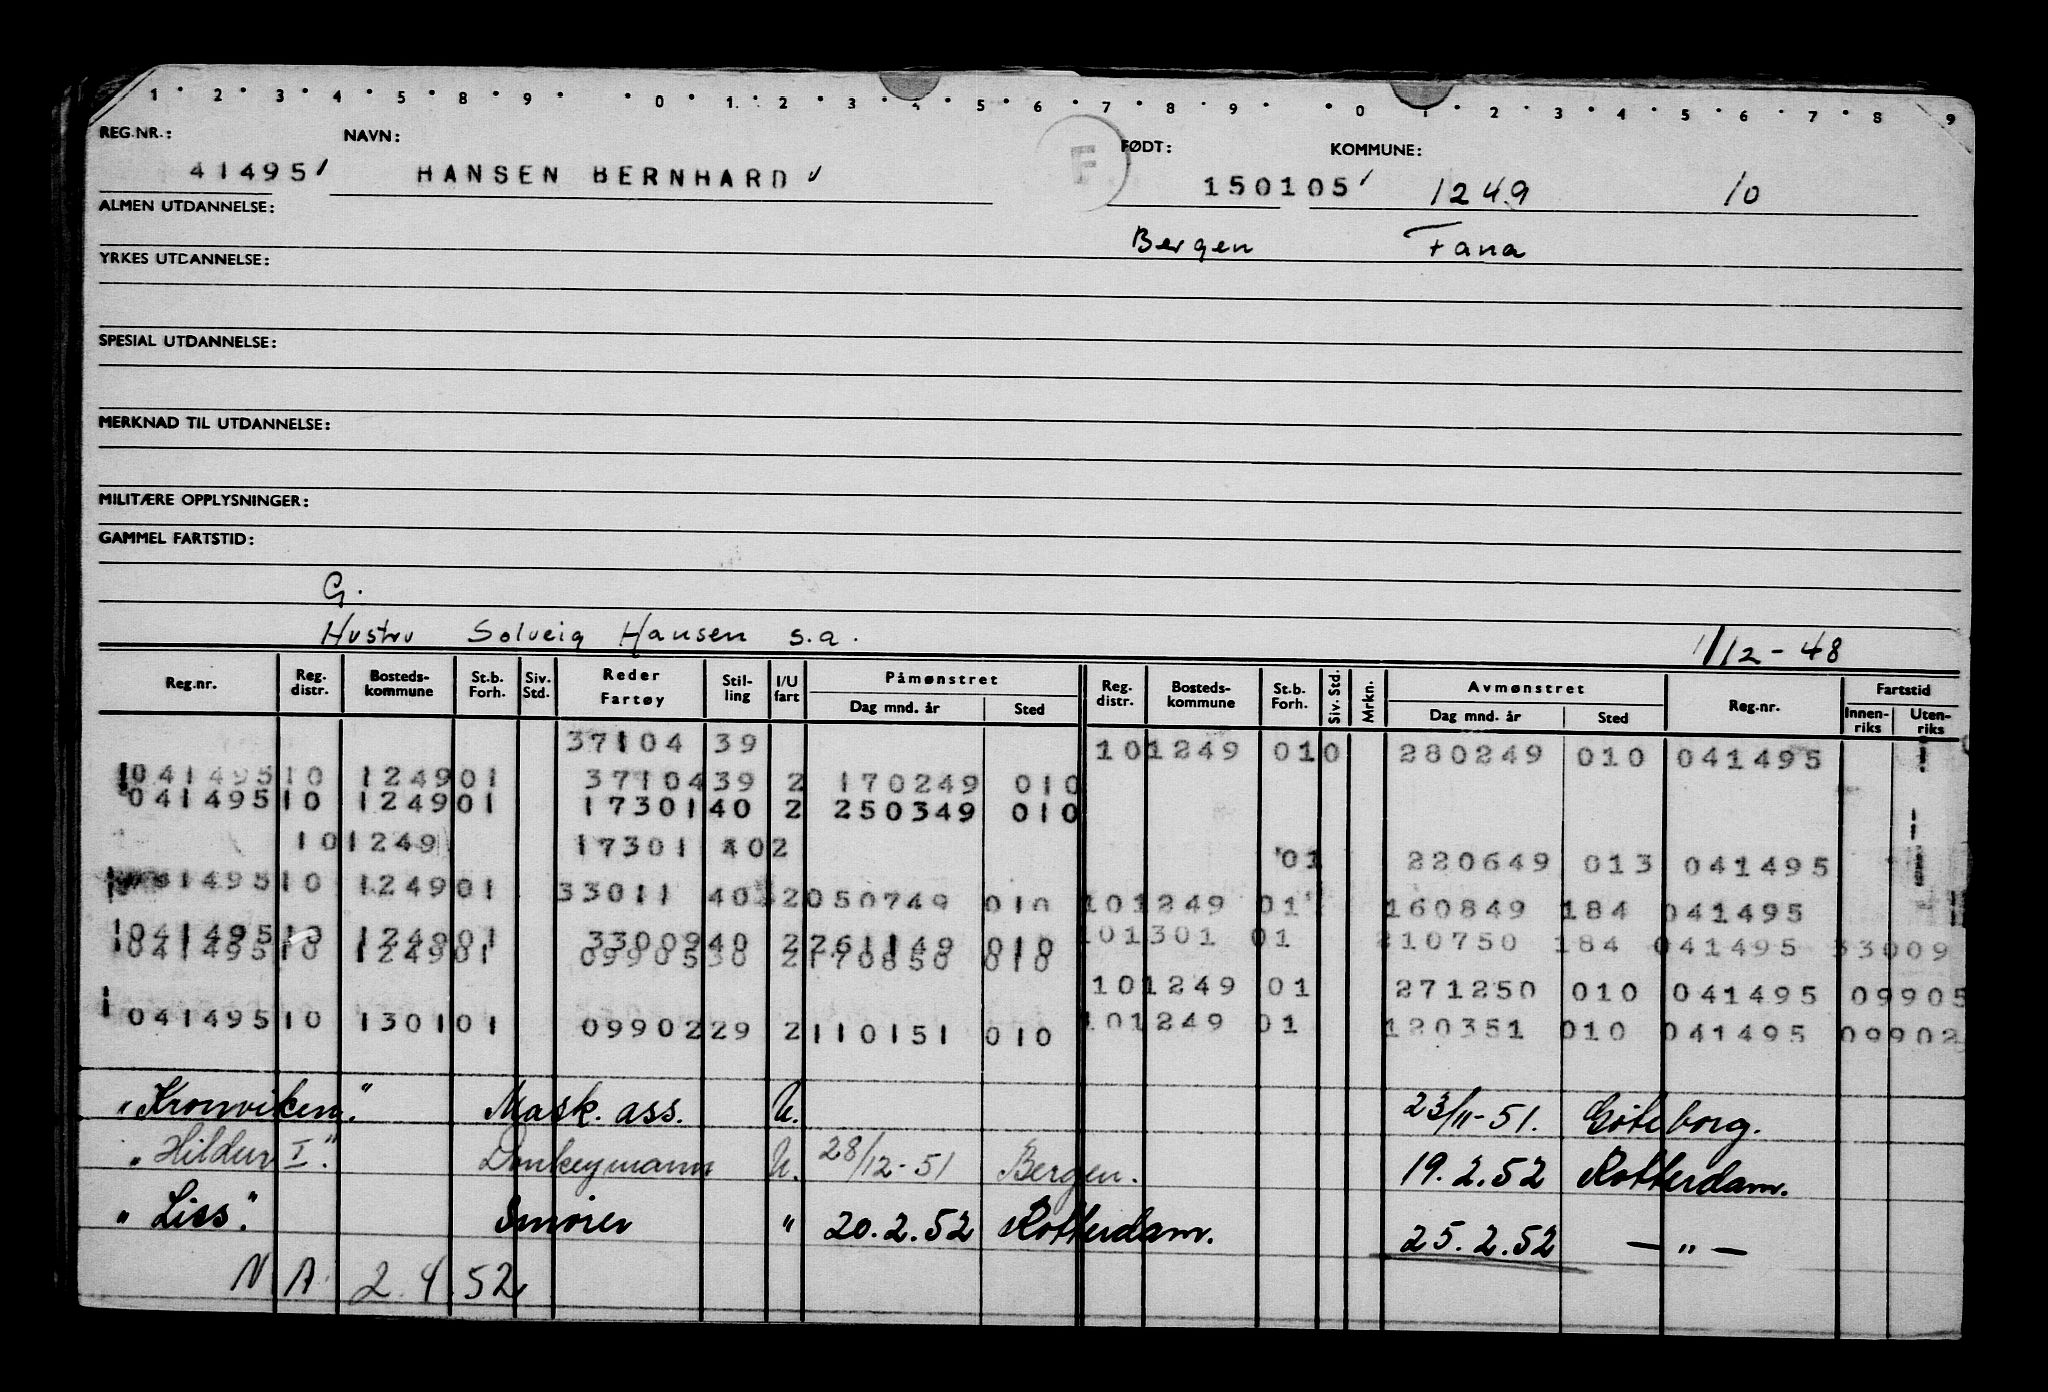 1 · 2 · 3 · 4 · 5 · 8 · 9 · · 0 · 1 · 2 · 3 · 4 · 5 · 6 · 7 · 8 · 9 · · 0 · 1 · 2 · 3 · 4 · 5 · 6 · 7 · 8 9
REG.NR.: NAVN: F FØDT: KOMMUNE:
41495 HANSEN BERNHARD 150105 1249 10
ALMEN UTDANNELSE:
Bergen Fana
YRKES UTDANNELSE:
SPESIAL UTDANNELSE:
MERKNAD TIL UTDANNELSE:
MILITÆRE OPPLYSNINGER:
GAMMEL FARTSTID:
G.
Hustru Solveig Hansen s.a. 1/12-48
Reg.nr. Reg. distr. Bosteds-kommune St.b. Forh. Siv. Std. Reder Fartøy Stil-ling I/U fart Påmønstret Dag mnd. år Sted Reg. distr. Bosteds-kommune St.b. Forh. Siv. Std. Mrkn. Avmønstret Dag mnd. år Sted Reg.nr. Fartstid Innen-riks Uten-riks
37104 39 101249 010 280249 010 041495
041495 10 1249 01 37104 39 2 170249 010
041495 10 1249 01 17301 40 2 250349 010
101249 17301 402 01 220649 013 041495
41495 10 1249 01 33011 40 2 050749 010 101249 01 160849 184 041495
041495 10 1249 01 33009 40 2 261149 010 101301 01 210750 184 041495 33009
041495 10 1249 01 09905 30 2 170850 010
101249 01 271250 010 041495 09905
041495 10 1301 01 09902 29 2 110151 010 101249 01 120351 010 041495 09902
"Kronviken." Mask. ass. U. 23/11-51. Göteborg.
"Hildur I." Donkeymann U. 28/12-51 Bergen. 19.2.52 Rotterdam.
"Liss". Smører " 20.2.52 Rotterdam. 25.2.52 — " —
N A 2.4.52